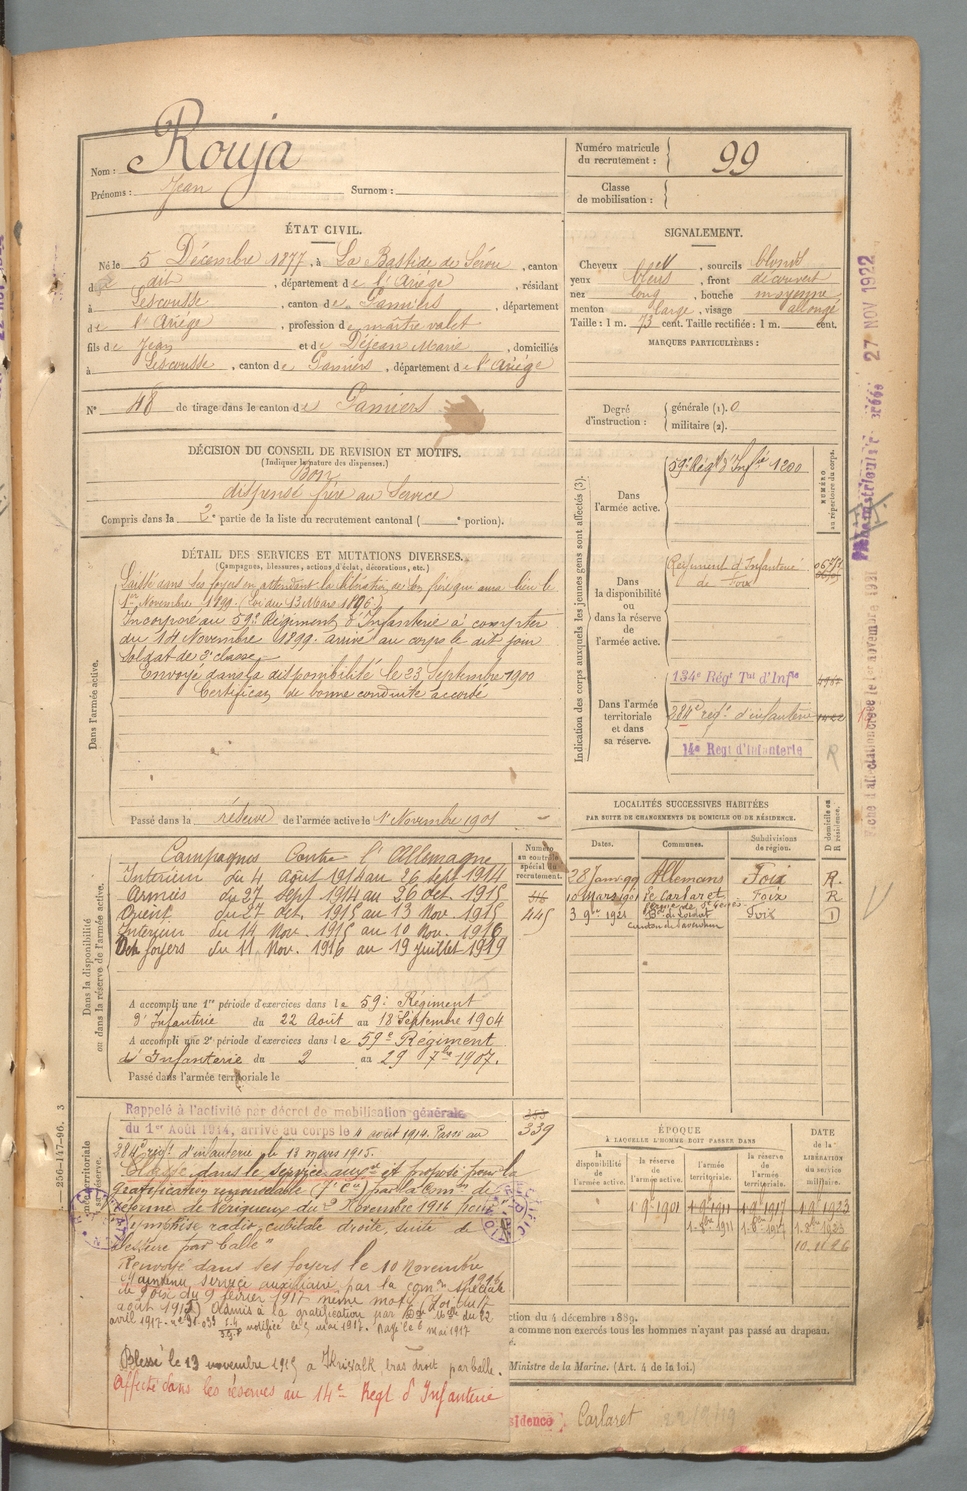 Nom : Rouja
Prénoms : Jean Surnom :
Numéro matricule du recrutement : 99
Classe de mobilisation :
ÉTAT CIVIL.
Né le 5 Décembre 1877, à La Bastide de Sérou, canton
d dit, département de l'Ariège, résidant
à Lescousse, canton de Pamiers, département
de l'Ariège, profession de maître valet
fils de Jean et de Dejean Marie, domiciliés
à Lescousse, canton de Pamiers, département de l'Ariège
N° 48 de tirage dans le canton de Pamiers
SIGNALEMENT.
Cheveux, sourcils blonds
yeux bleus, front découvert
nez long, bouche moyenne
menton large, visage allongé
Taille : 1 m. 73 cent. Taille rectifiée : 1 m. cent.
MARQUES PARTICULIÈRES :
Degré d'instruction : générale (1). 0
militaire (2).
DÉCISION DU CONSEIL DE REVISION ET MOTIFS.
(Indiquer la nature des dispenses.)
Bon
dispensé frère au Service
Compris dans la 2e partie de la liste du recrutement cantonal ( e portion).
DÉTAIL DES SERVICES ET MUTATIONS DIVERSES.
(Campagnes, blessures, actions d'éclat, décorations, etc.)
Dans l'armée active.
Laissé dans ses foyers en attendant la libération de son frère qui aura lieu le
1er Novembre 1899. (Loi du 13 Mars 1896)
Incorporé au 59e Régiment d'Infanterie à compter
du 14 Novembre 1899. arrivé au corps le dit jour
Soldat de 2e classe
Envoyé dans la disponibilité le 23 Septembre 1900
Certificat de bonne conduite accordé
Passé dans la réserve de l'armée active le 1er Novembre 1901
Indication des corps auxquels les jeunes gens sont affectés (3).
NUMÉRO au répertoire du corps.
Dans l'armée active.
59e Régt d'Infie 1200
Dans la disponibilité ou dans la réserve de l'armée active.
Régiment d'Infanterie
de Foix
Dans l'armée territoriale et dans sa réserve.
134e Régt Tal d'Infie
284e régt d'infanterie
14e Regt d'Infanterie R
LOCALITÉS SUCCESSIVES HABITÉES
PAR SUITE DE CHANGEMENTS DE DOMICILE OU DE RÉSIDENCE.
Numéro au contrôle spécial du recrutement.
Dates. Communes. Subdivisions de région. D domicile ou R résidence.
28 Janv. 99 Allemans Foix R.
10 Mars 1901 Le Carlaret Foix R
445 3 9bre 1921 Foix D
Dans la disponibilité ou dans la réserve de l'armée active.
Campagnes Contre l'Allemagne
Intérieur du 4 Août 1914 au 26 sept 1914
Armées du 27 sept 1914 au 26 oct. 1915
Orient du 27 oct. 1915 au 13 Nov. 1915
Intérieur du 14 Nov. 1915 au 10 Nov. 1916
foyers du 11 Nov. 1916 au 19 juillet 1919
A accompli une 1re période d'exercices dans le 59e Régiment
d'Infanterie du 22 Août au 18 Septembre 1904
A accompli une 2e période d'exercices dans le 59e Régiment
d'Infanterie du 2 au 29 7bre 1907.
Passé dans l'armée territoriale le
Rappelé à l'activité par décret de mobilisation générale
du 1er Août 1914, arrivé au corps le 4 août 1914. Passé au
284e régt d'infanterie le 18 mars 1915.
339
Classé dans le service auxre et proposé pour la
gratification renouvelable (7e Cie) par la Comon de
réforme de Périgueux du 2 Novembre 1916 pour
symphise radio cubitale droite, suite de
blessure par balle"
Renvoyé dans ses foyers le 10 Novembre 1916
Maintenu service auxiliaire par la comon spéciale
de Foix du 9 février 1917 même motif (Loi du 17
août 1915) Admis à la gratification par du 22
avril 1917. notifiée le 5 mai 1917. Payé le 6 mai 1917
Blessé le 13 novembre 1915 à Krivolak bras droit par balle.
Affecté dans les réserves au 14e Regt d'Infanterie
ÉPOQUE
À LAQUELLE L'HOMME DOIT PASSER DANS
la disponibilité de l'armée active. la réserve de l'armée active. l'armée territoriale. la réserve de l'armée territoriale. DATE de la LIBÉRATION du service militaire.
1-9bre 1901 1-9bre 1911 1-9bre 1917 1-9bre 1923
1-8bre 1911 1-8bre 1917 1-8bre 1923
10.11.26
ction du 4 décembre 1889.
a comme non exercés tous les hommes n'ayant pas passé au drapeau.
Ministre de la Marine. (Art. 4 de la loi.)
sidence Carlaret 22/9/19
—256-147-96. 3
27 NOV 1922